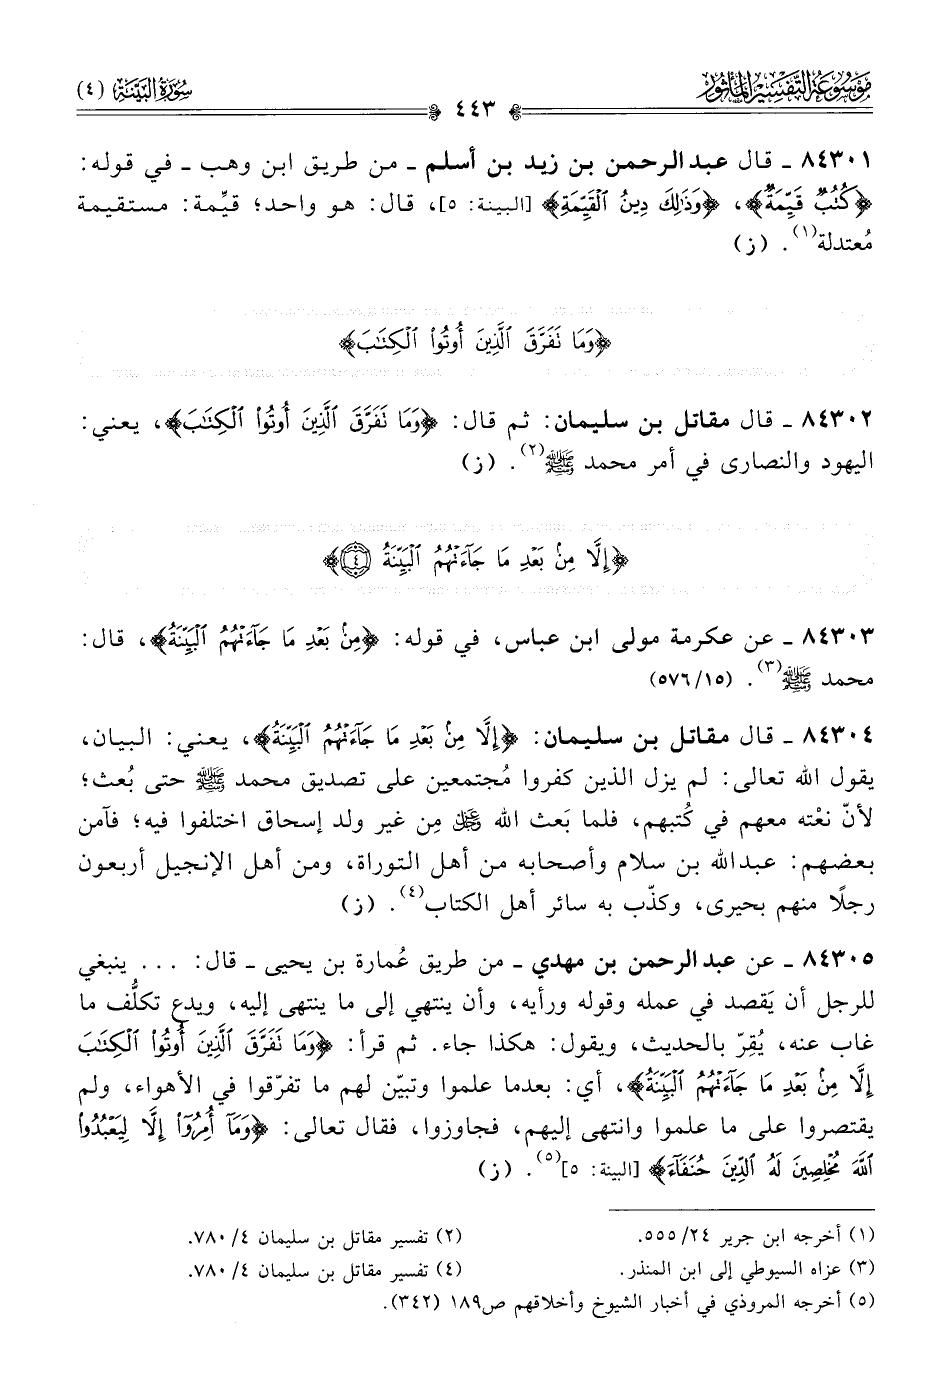 مَوْسُوعَةُ التَّفْسِيرِ المَأْثُور
سُورَةُ البَيِّنَةِ (٤)
٤٤٣
٨٤٣٠١ ـ قال عبد الرحمن بن زيد بن أسلم ـ من طريق ابن وهب ـ في قوله:
﴿كُتُبٌ قَيِّمَةٌ﴾، ﴿وَذَٰلِكَ دِينُ الْقَيِّمَةِ﴾ [البينة: ٥]، قال: هو واحد؛ قيِّمة: مستقيمة
مُعتدلة(١). (ز)
﴿وَمَا تَفَرَّقَ ٱلَّذِينَ أُوتُوا۟ ٱلْكِتَٰبَ﴾
٨٤٣٠٢ ـ قال مقاتل بن سليمان: ثم قال: ﴿وَمَا تَفَرَّقَ ٱلَّذِينَ أُوتُوا۟ ٱلْكِتَٰبَ﴾، يعني:
اليهود والنصارى في أمر محمد ﷺ(٢). (ز)
﴿إِلَّا مِنۢ بَعْدِ مَا جَآءَتْهُمُ ٱلْبَيِّنَةُ ۝٤﴾
٨٤٣٠٣ ـ عن عكرمة مولى ابن عباس، في قوله: ﴿مِنۢ بَعْدِ مَا جَآءَتْهُمُ ٱلْبَيِّنَةُ﴾، قال:
محمد ﷺ(٣). (٥٧٦/١٥)
٨٤٣٠٤ ـ قال مقاتل بن سليمان: ﴿إِلَّا مِنۢ بَعْدِ مَا جَآءَتْهُمُ ٱلْبَيِّنَةُ﴾، يعني: البيان،
يقول الله تعالى: لم يزل الذين كفروا مُجتمعين على تصديق محمد ﷺ حتى بُعث؛
لأنّ نعْته معهم في كُتبهم، فلما بَعث الله عز وجل مِن غير ولد إسحاق اختلفوا فيه؛ فآمن
بعضهم: عبدالله بن سلام وأصحابه من أهل التوراة، ومن أهل الإنجيل أربعون
رجلًا منهم بحيرى، وكذّب به سائر أهل الكتاب(٤). (ز)
٨٤٣٠٥ ـ عن عبد الرحمن بن مهدي ـ من طريق عُمارة بن يحيى ـ قال: ... ينبغي
للرجل أن يَقصد في عمله وقوله ورأيه، وأن ينتهي إلى ما ينتهى إليه، ويدع تكلُّف ما
غاب عنه، يُقِرّ بالحديث، ويقول: هكذا جاء. ثم قرأ: ﴿وَمَا تَفَرَّقَ ٱلَّذِينَ أُوتُوا۟ ٱلْكِتَٰبَ
إِلَّا مِنۢ بَعْدِ مَا جَآءَتْهُمُ ٱلْبَيِّنَةُ﴾، أي: بعدما علموا وتبيّن لهم ما تفرّقوا في الأهواء، ولم
يقتصروا على ما علموا وانتهى إليهم، فجاوزوا، فقال تعالى: ﴿وَمَآ أُمِرُوٓا۟ إِلَّا لِيَعْبُدُوا۟
ٱللَّهَ مُخْلِصِينَ لَهُ ٱلدِّينَ حُنَفَآءَ﴾ [البينة: ٥](٥). (ز)
(١) أخرجه ابن جرير ٢٤/ ٥٥٥. (٢) تفسير مقاتل بن سليمان ٤/ ٧٨٠.
(٣) عزاه السيوطي إلى ابن المنذر. (٤) تفسير مقاتل بن سليمان ٤/ ٧٨٠.
(٥) أخرجه المروذي في أخبار الشيوخ وأخلاقهم ص١٨٩ (٣٤٢).